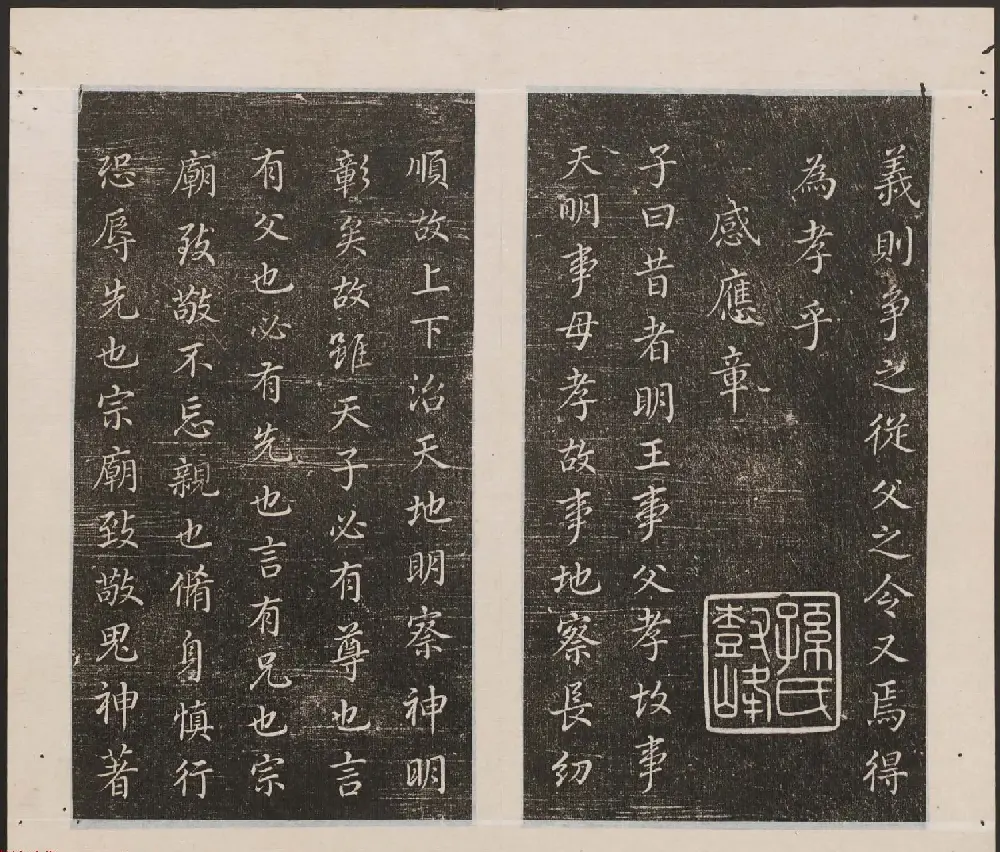 義則争之從父之令又焉得
為孝乎
感應章
子曰昔者明王事父孝故事
天明事母孝故事地察長幼
順故上下治天地明察神明
彰矣故雖天子必有尊也言
有父也必有先也言有兄也宗
廟致敬不忘親也脩身慎行
恐辱先也宗廟致敬鬼神著
孫氏